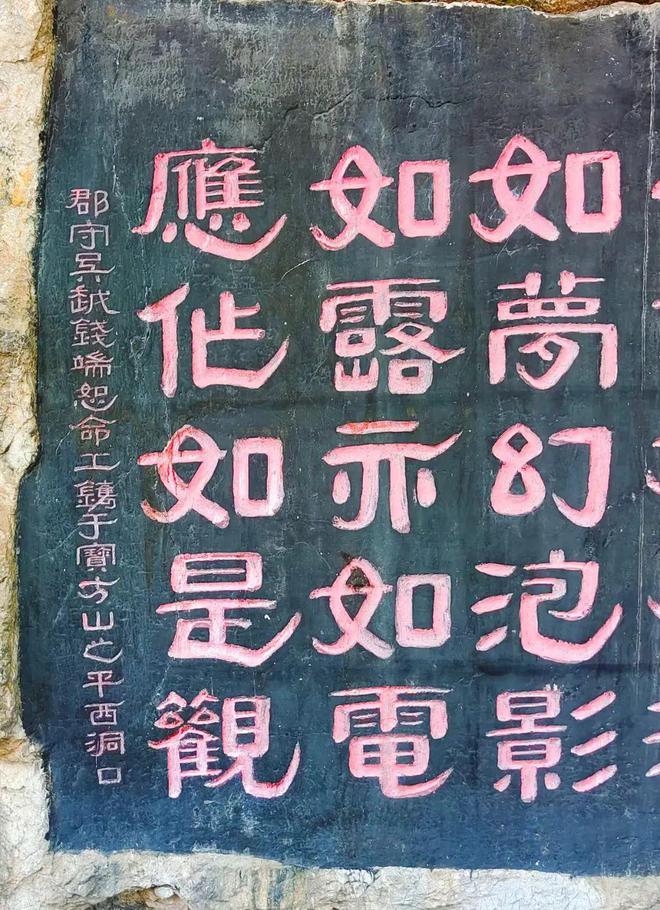 如夢幻泡影
如露亦如電
應作如是觀
郡守吳鉞錢端恕命工鐫于寶方山之平西洞口